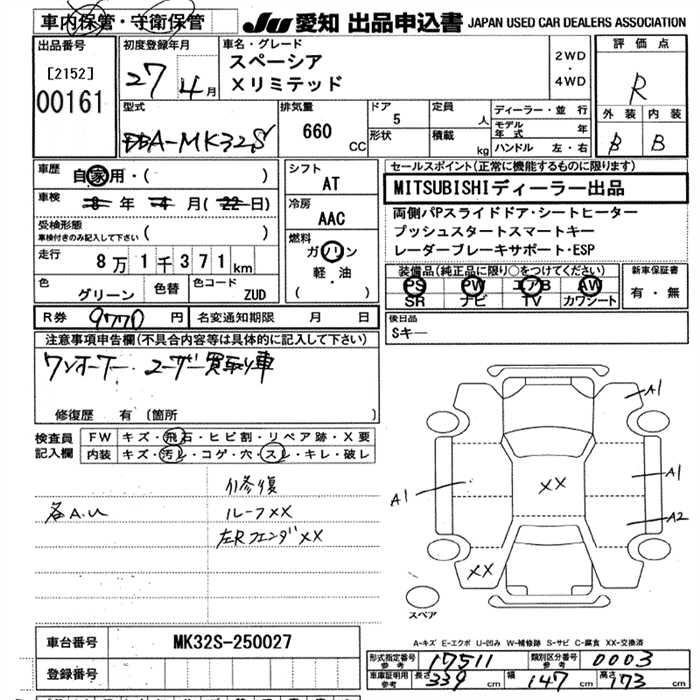 車内保管・守衛保管
JU 愛知 出品申込書 JAPAN USED CAR DEALERS ASSOCIATION
出品番号
[2152]
00161
初度登録年月
27 4月
車名・グレード
スペーシア
Xリミテッド
2WD
・
4WD
評価点
R
外装 内装
B B
型式
DBA-MK32S
排気量
660 CC
ドア 5
形状
定員 人
積載 kg
ディーラー・並行
モデル年式 年
ハンドル 左・右
車歴
自家用・( )
車検
8年 4月(22日)
受検形態
車検付きのみ記入して下さい ( )
走行
8万1千371km
色
グリーン
色替
色コード
ZUD
シフト
AT
冷房
AAC
燃料
ガソリン
軽・油
( )
セールスポイント(正常に機能するものに限ります)
MITSUBISHIディーラー出品
両側パPスライドドア・シートヒーター
プッシュスタートスマートキー
レーダーブレーキサポート・ESP
装備品(純正品に限り○をつけてください)
PS PW エアB AW
SR ナビ TV カワシート
新車保証書
有・無
R券 9770 円
名変通知期限 月 日
後日品
Sキー
注意事項申告欄(不具合内容等は具体的に記入して下さい)
ワンオーナー ユーザー買取り車
修復歴 有 (箇所 )
検査員
記入欄
FW キズ・飛石・ヒビ割・リペア跡・X要
内装 キズ・汚レ・コゲ・穴・スレ・キレ・破レ
修復
各A.U ルーフXX
左RフェンダXX
A1
A1
A1
XX
A2
XX
スペア
A-キズ E-エクボ U-凹み W-補修跡 S-サビ C-腐食 XX-交換済
車台番号 MK32S-250027
登録番号
形式指定番号 参考 17511
類別区分番号 参考 0003
車庫証明用 参考 長さ 339 cm 幅 147 cm 高さ 173 cm